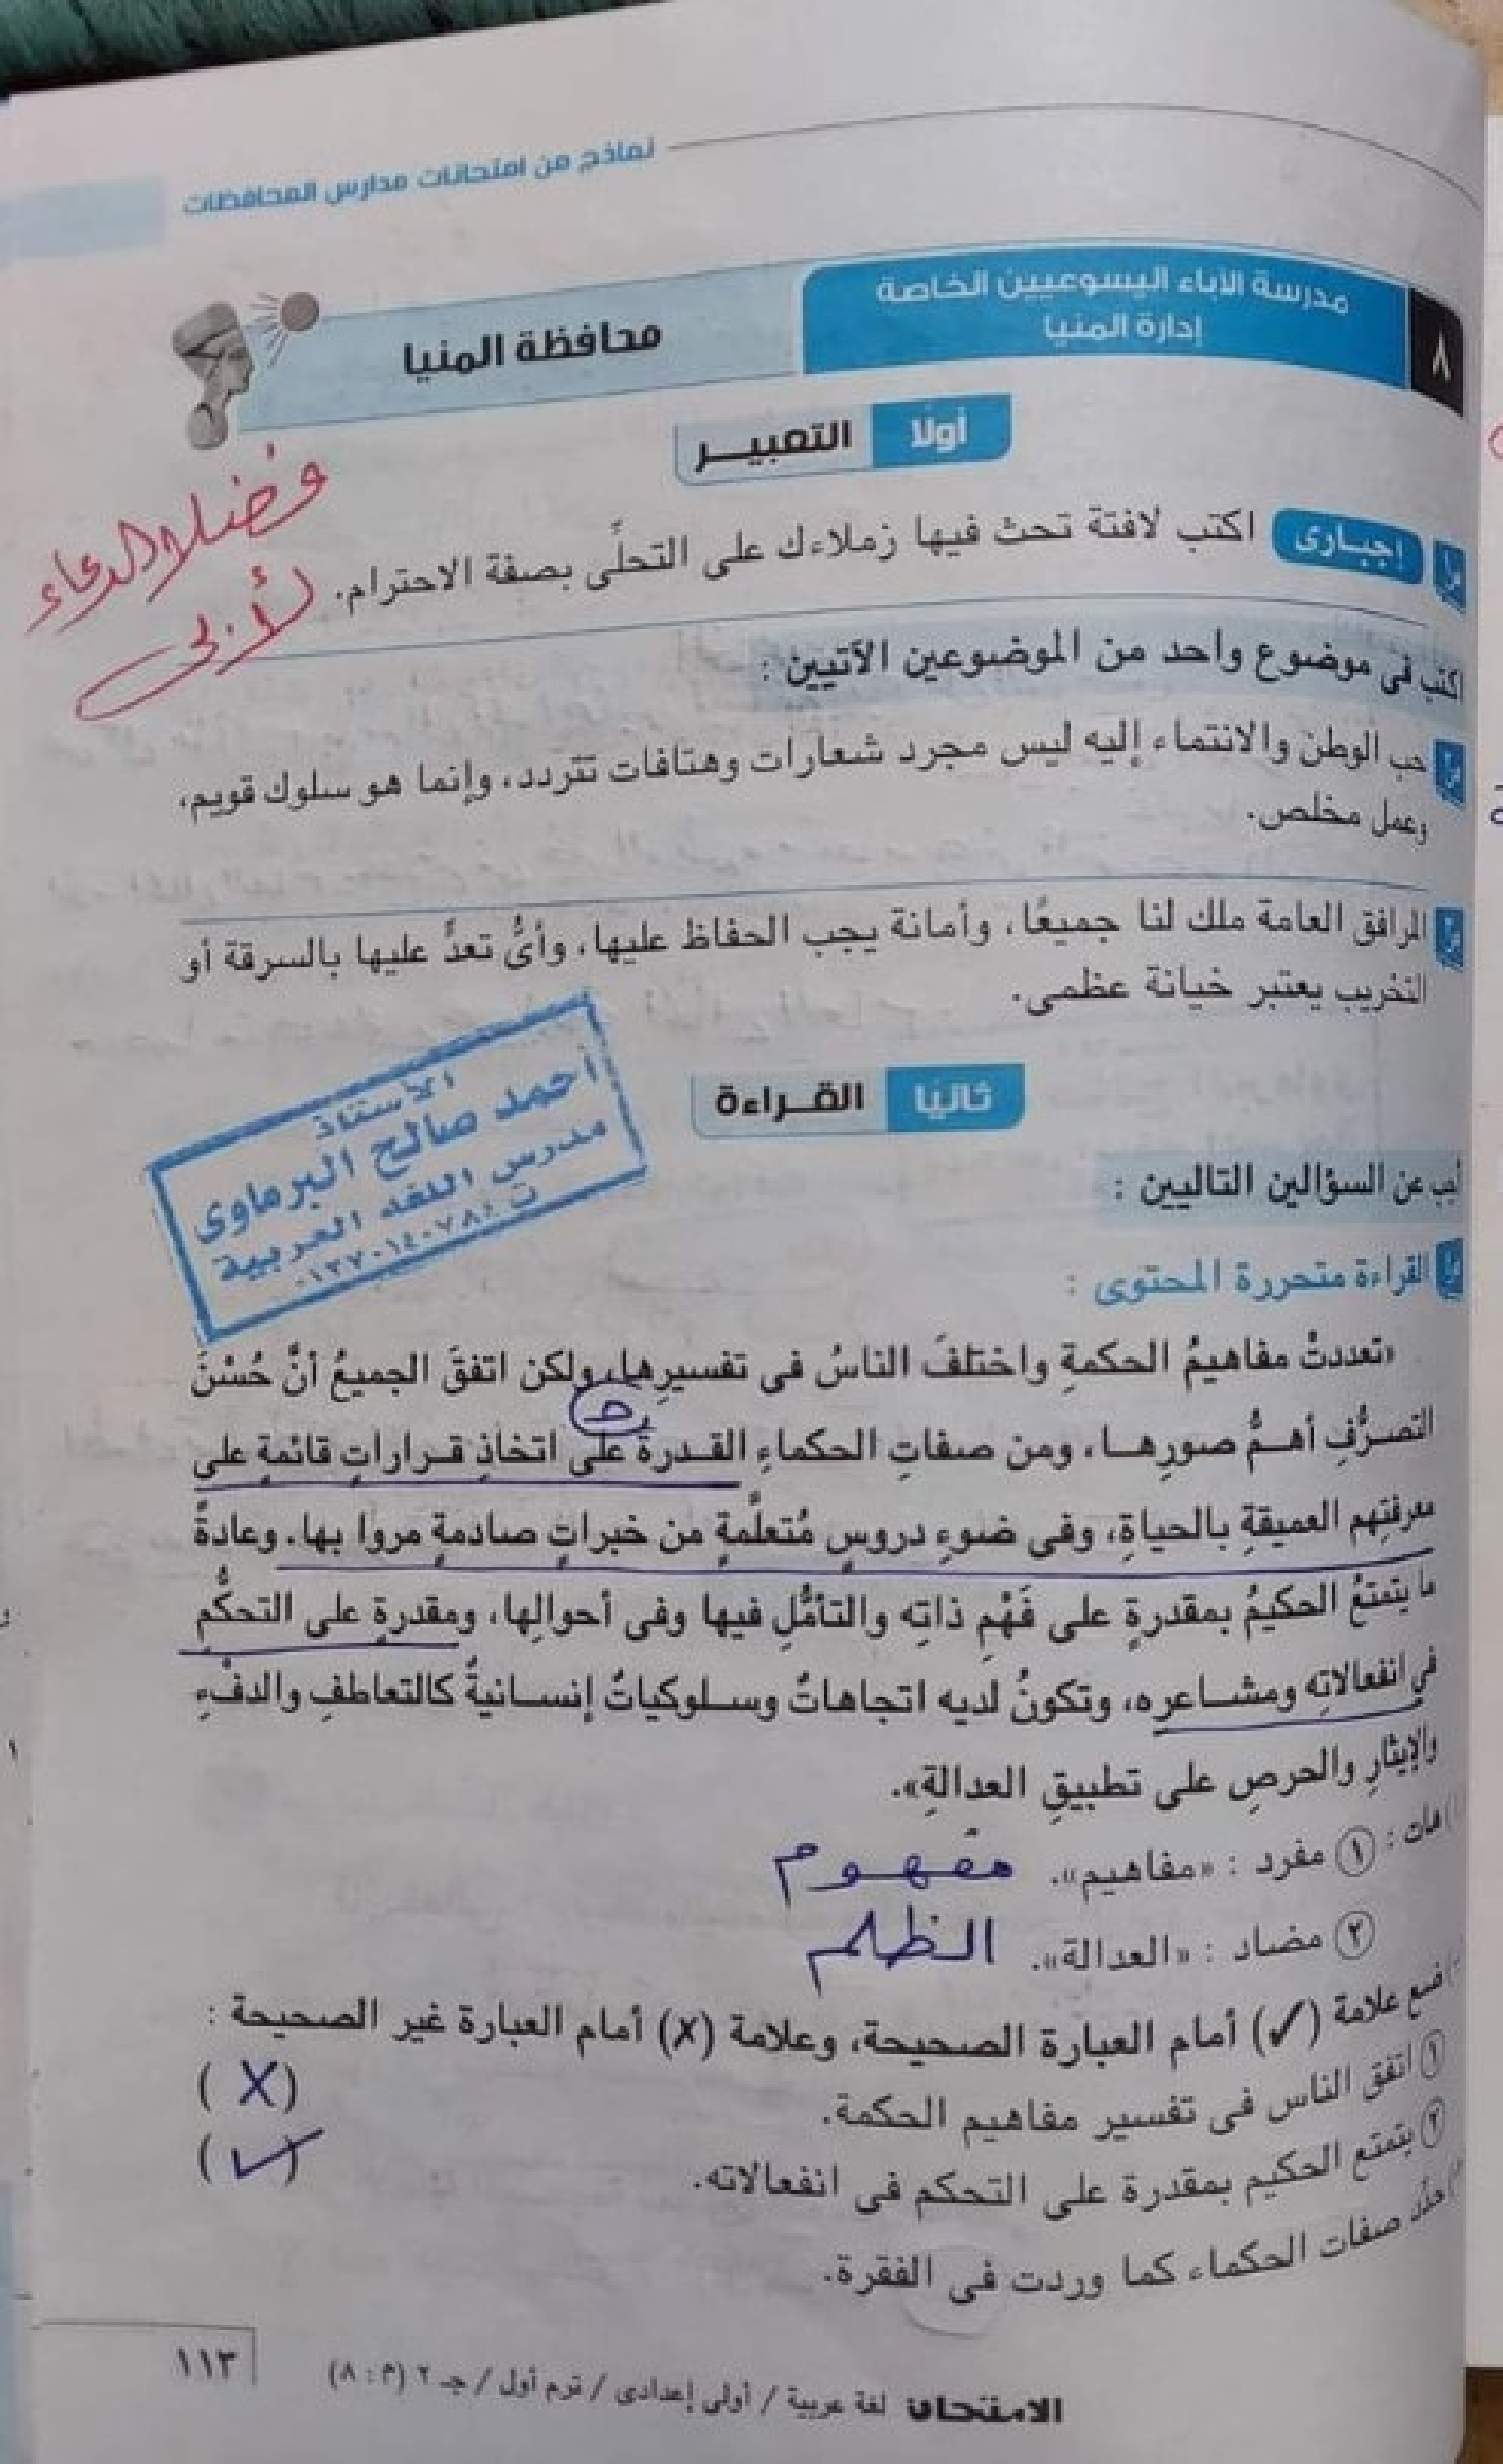 نماذج من امتحانات مدارس المحافظات
٨
مدرسة الآباء اليسوعيين الخاصة
إدارة المنيا
محافظة المنيا
أولا التعبيـــر
فضلا الدعاء
لأبى
إجبارى اكتب لافتة تحث فيها زملاءك على التحلّى بصفة الاحترام.
اكتب فى موضوع واحد من الموضوعين الآتيين :
حب الوطن والانتماء إليه ليس مجرد شعارات وهتافات تتردد، وإنما هو سلوك قويم،
وعمل مخلص.
المرافق العامة ملك لنا جميعًا، وأمانة يجب الحفاظ عليها، وأىُّ تعدٍّ عليها بالسرقة أو
التخريب يعتبر خيانة عظمى.
ثانيا القـــراءة
الأستاذ
أحمد صالح البرماوى
مدرس اللغه العربية
أجب عن السؤالين التاليين :
القراءة متحررة المحتوى :
«تعددتْ مفاهيمُ الحكمةِ واختلفَ الناسُ فى تفسيرِها، ولكن اتفقَ الجميعُ أنَّ حُسْنَ
التصرُّفِ أهمُّ صورِها، ومن صفاتِ الحكماءِ القدرةُ على اتخاذِ قراراتٍ قائمةٍ على
معرفتِهم العميقةِ بالحياةِ، وفى ضوءِ دروسٍ مُتعلَّمةٍ من خبراتٍ صادمةٍ مروا بها. وعادةً
ما يتمتعُ الحكيمُ بمقدرةٍ على فَهْمِ ذاتِه والتأمُّلِ فيها وفى أحوالِها، ومقدرةٍ على التحكُّمِ
فى انفعالاتِه ومشاعرِه، وتكونُ لديه اتجاهاتٌ وسلوكياتٌ إنسانيةٌ كالتعاطفِ والدفْءِ
والإيثارِ والحرصِ على تطبيقِ العدالةِ».
هات : ١ مفرد : «مفاهيم». مفهوم
٢ مضاد : «العدالة». الظلم
ضع علامة (✓) أمام العبارة الصحيحة، وعلامة (x) أمام العبارة غير الصحيحة :
١ اتفق الناس فى تفسير مفاهيم الحكمة. (X)
٢ يتمتع الحكيم بمقدرة على التحكم فى انفعالاته. (✓)
حدِّد صفات الحكماء كما وردت فى الفقرة.
الامتحان لغة عربية / أولى إعدادى / ترم أول / جـ ٢ (م : ٨)
١١٣